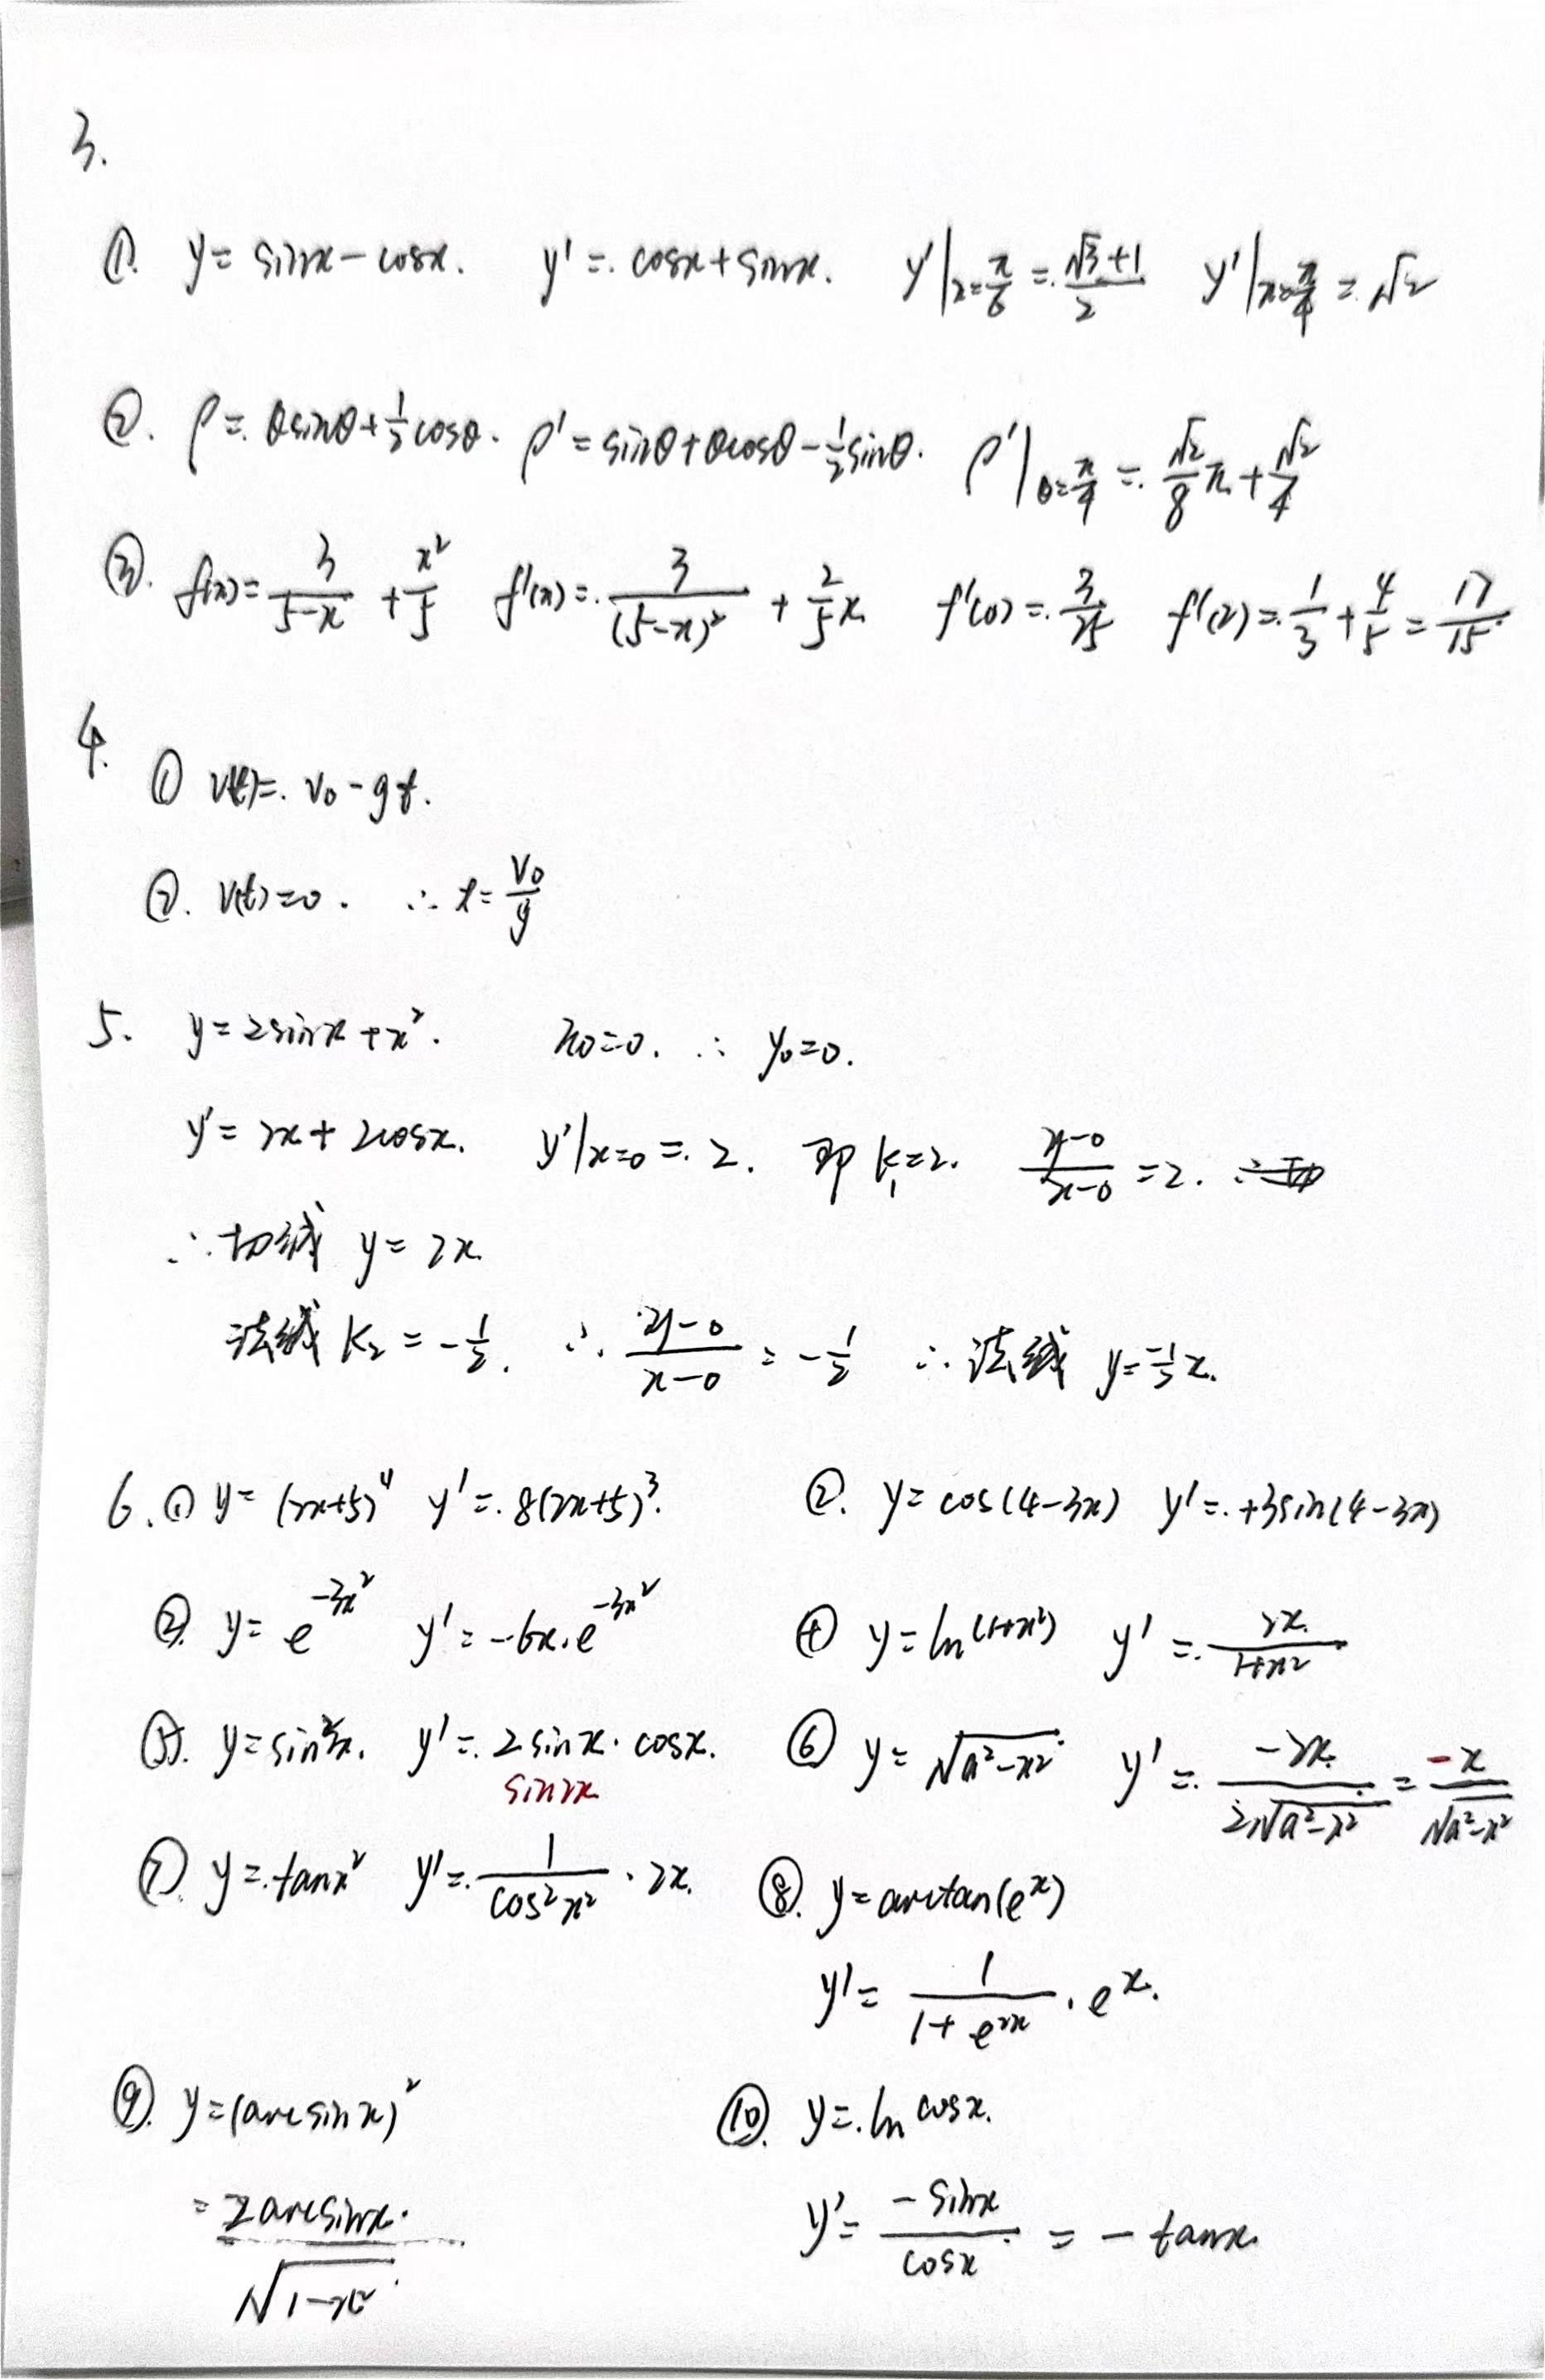 3.
①. y = sinx - cosx. y' = cosx + sinx. y'|x=π/6 = (√3+1)/2 y'|x=π/4 = √2
②. ρ = θsinθ + 1/2 cosθ. ρ' = sinθ + θcosθ - 1/2 sinθ. ρ'|θ=π/4 = √2/8 π + √2/4
③. f(x) = 3/(5-x) + x²/5 f'(x) = 3/(5-x)² + 2/5 x f'(0) = 3/25 f'(2) = 1/3 + 4/5 = 17/15
4. ① v(t) = v₀ - gt.
②. v(t) = 0. ∴ t = v₀/g
5. y = 2sinx + x². x₀ = 0. ∴ y₀ = 0.
y' = 2x + 2cosx. y'|x=0 = 2. 即 k₁ = 2. (y-0)/(x-0) = 2.
∴ 切线 y = 2x
法线 k₂ = -1/2. ∴ (y-0)/(x-0) = -1/2 ∴ 法线 y = -1/2 x.
6. ① y = (2x+5)⁴ y' = 8(2x+5)³. ②. y = cos(4-3x) y' = +3sin(4-3x)
③. y = e^(-3x²) y' = -6x·e^(-3x²) ④ y = ln(1+x²) y' = 2x/(1+x²)
⑤. y = sin²x. y' = 2sinx·cosx. ⑥ y = √(a²-x²) y' = -2x/(2√(a²-x²)) = -x/√(a²-x²)
sin2x
⑦. y = tanx² y' = 1/(cos²x²)·2x. ⑧. y = arctan(e^x)
y' = 1/(1+e^(2x))·e^x.
⑨. y = (arcsinx)² ⑩. y = ln cosx.
= 2arcsinx/√(1-x²) y' = -sinx/cosx = -tanx.